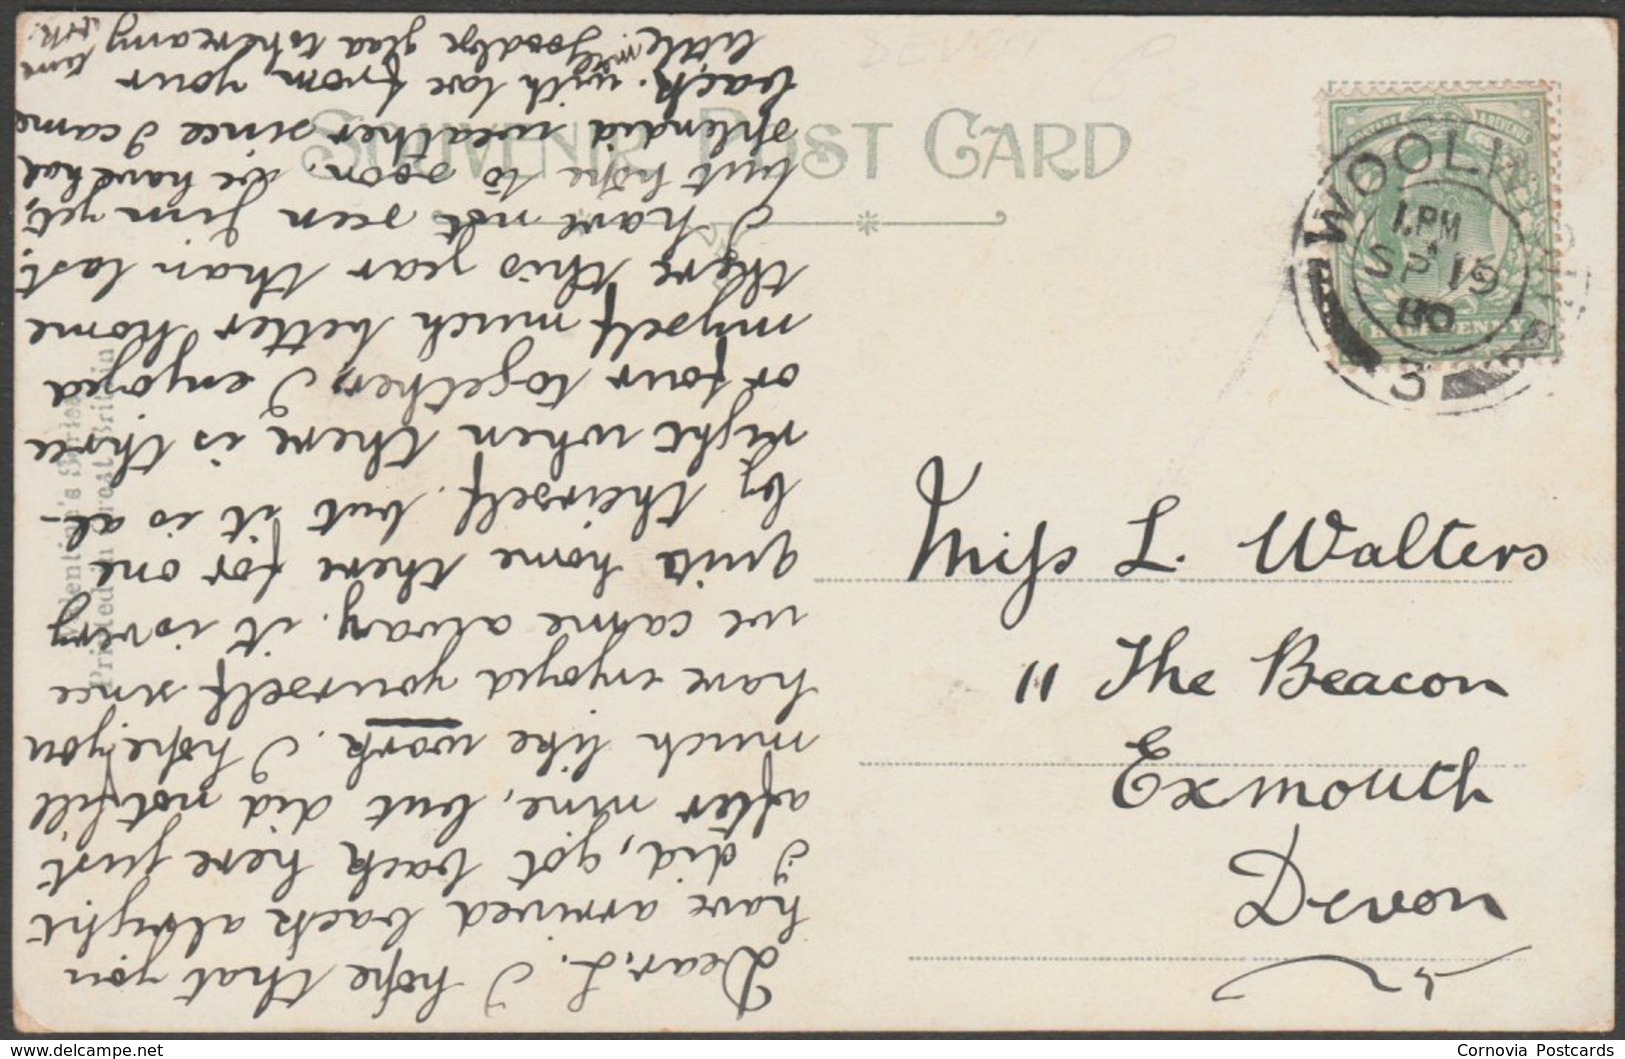 SOUVENIR POST CARD
WOOLW
1. PM
SP 19
3
HALFPENNY
Miss L. Walters
11 The Beacon
Exmouth
Devon
Valentine's Series
Printed in Great Britain
Dear L. I hope that you
have arrived back alright
I did, got back here just
after nine, but did not fill
much like work. I hope you
have enjoyed yourself since
we came alway. it is very
quit home there for one
by theirself. but it is al-
right when there is three
or four together, I enjoyed
myself much better home
there this year than last.
I have not seen Jim yet,
but hope to soon. we have had
splendid weather since I came
back. with love from your
Goodbye glad to hear any
time
Cornovia Postcards